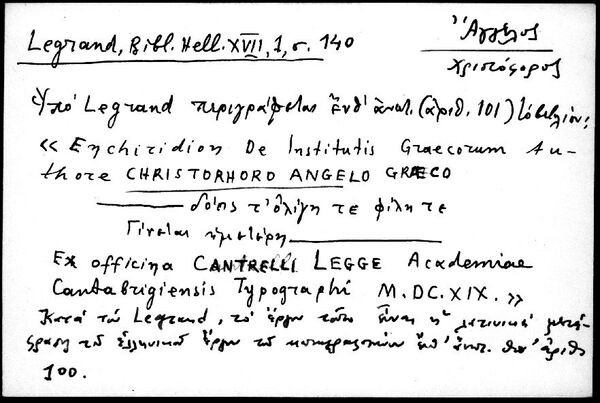 Legrand, Bibl. Hell. XVII, 1, σ. 140
Ἄγγελος
Χριστόφορος
Ὑπό Legrand περιγράφεται ἐνθ' ἀνωτ. (ἀριθ. 101) τό βιβλίον:
« Enchiridion De Institutis Graecorum Au-
thore CHRISTORHORO ANGELO GRÆCO
δόσις τ' ὀλίγη τε φίλη τε
Γίνεται ἡμετέρη
Ex officina CANTRELLI LEGGE Academiae
Cantabrigiensis Typographi M.DC.XIX. »
Κατά τόν Legrand, τό ἔργον τοῦτο εἶναι ἡ λατινική μετά-
φραση τοῦ ἑλληνικοῦ ἔργου τοῦ ὑπ' ἀριθ.
100.